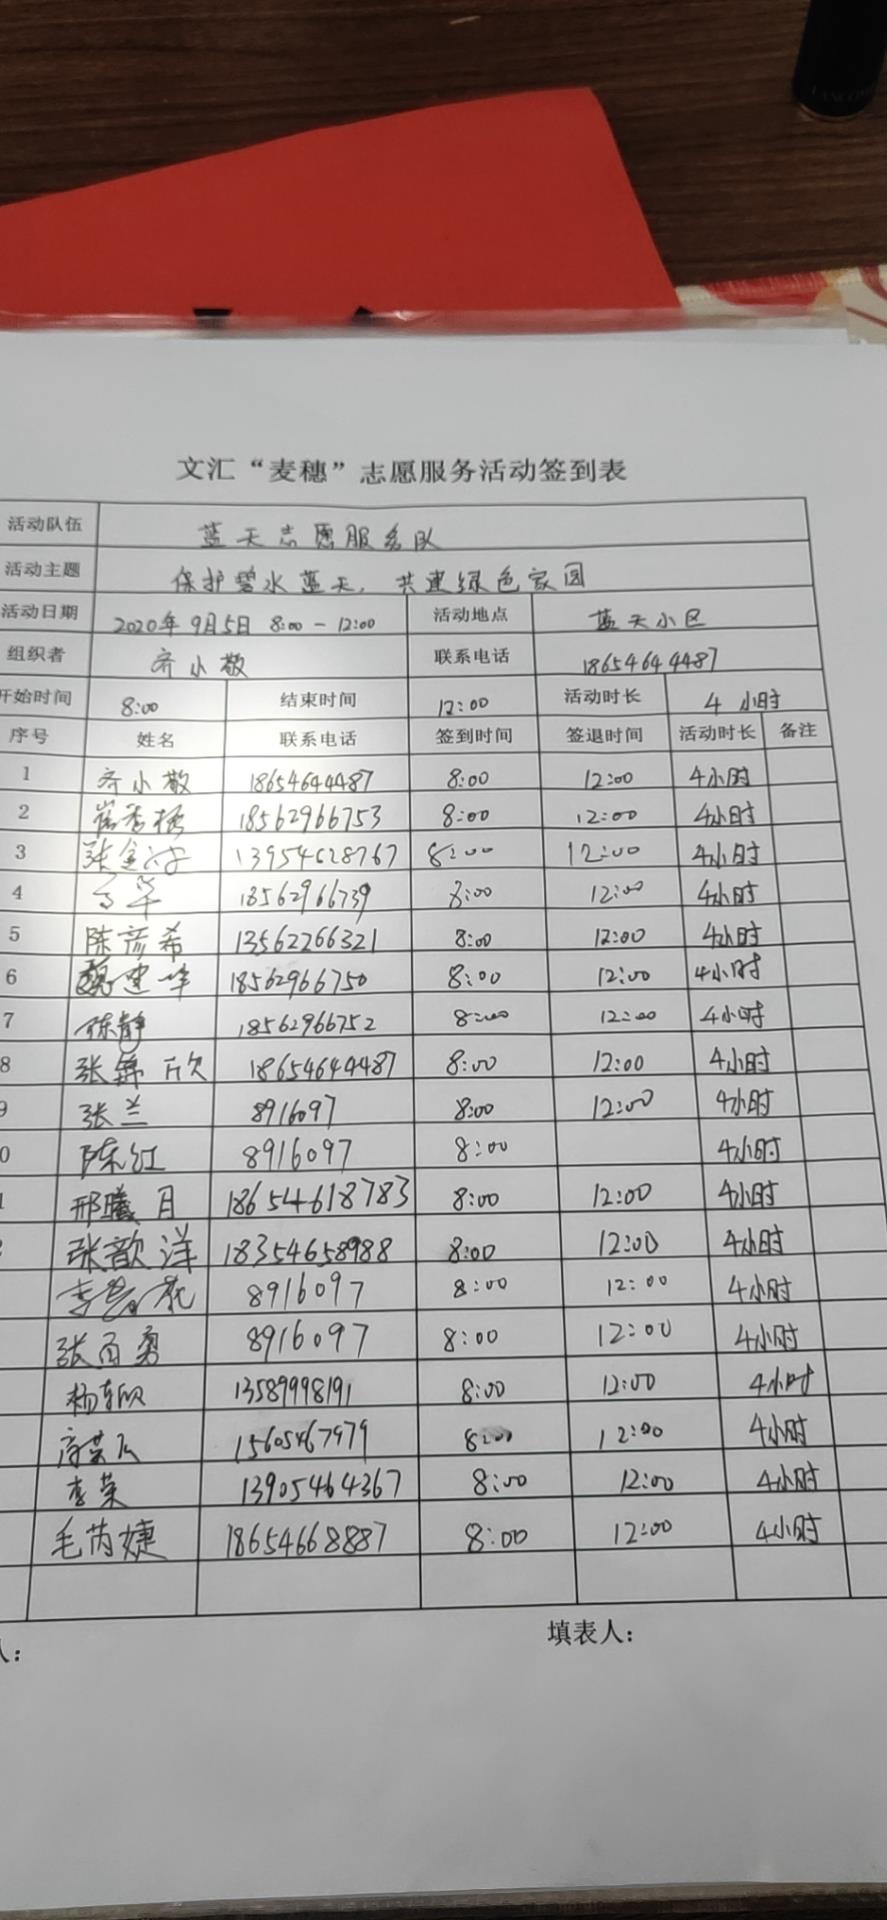 LANCOM
文汇“麦穗”志愿服务活动签到表
活动队伍 蓝天志愿服务队
活动主题 保护碧水蓝天，共建绿色家园
活动日期 2020年9月5日 8:00-12:00 活动地点 蓝天小区
组织者 齐小敬 联系电话 18654644487
开始时间 8:00 结束时间 12:00 活动时长 4小时
序号 姓名 联系电话 签到时间 签退时间 活动时长 备注
1 齐小敬 18654644487 8:00 12:00 4小时
2 18562966753 8:00 12:00 4小时
3 张 13954628767 8:00 12:00 4小时
4 18562966739 8:00 12:00 4小时
5 陈彦希 13562266321 8:00 12:00 4小时
6 魏建峰 18562966750 8:00 12:00 4小时
7 陈静 18562966752 8:00 12:00 4小时
8 张锦欣 18654644487 8:00 12:00 4小时
9 张兰 8916097 8:00 12:00 4小时
0 陈红 8916097 8:00 4小时
1 邢曦月 18654618783 8:00 12:00 4小时
张歆洋 18354658988 8:00 12:00 4小时
李 8916097 8:00 12:00 4小时
张百勇 8916097 8:00 12:00 4小时
杨 13589998191 8:00 12:00 4小时
15605467979 8:00 12:00 4小时
李荣 13905464367 8:00 12:00 4小时
毛芮婕 18654668887 8:00 12:00 4小时
人： 填表人：